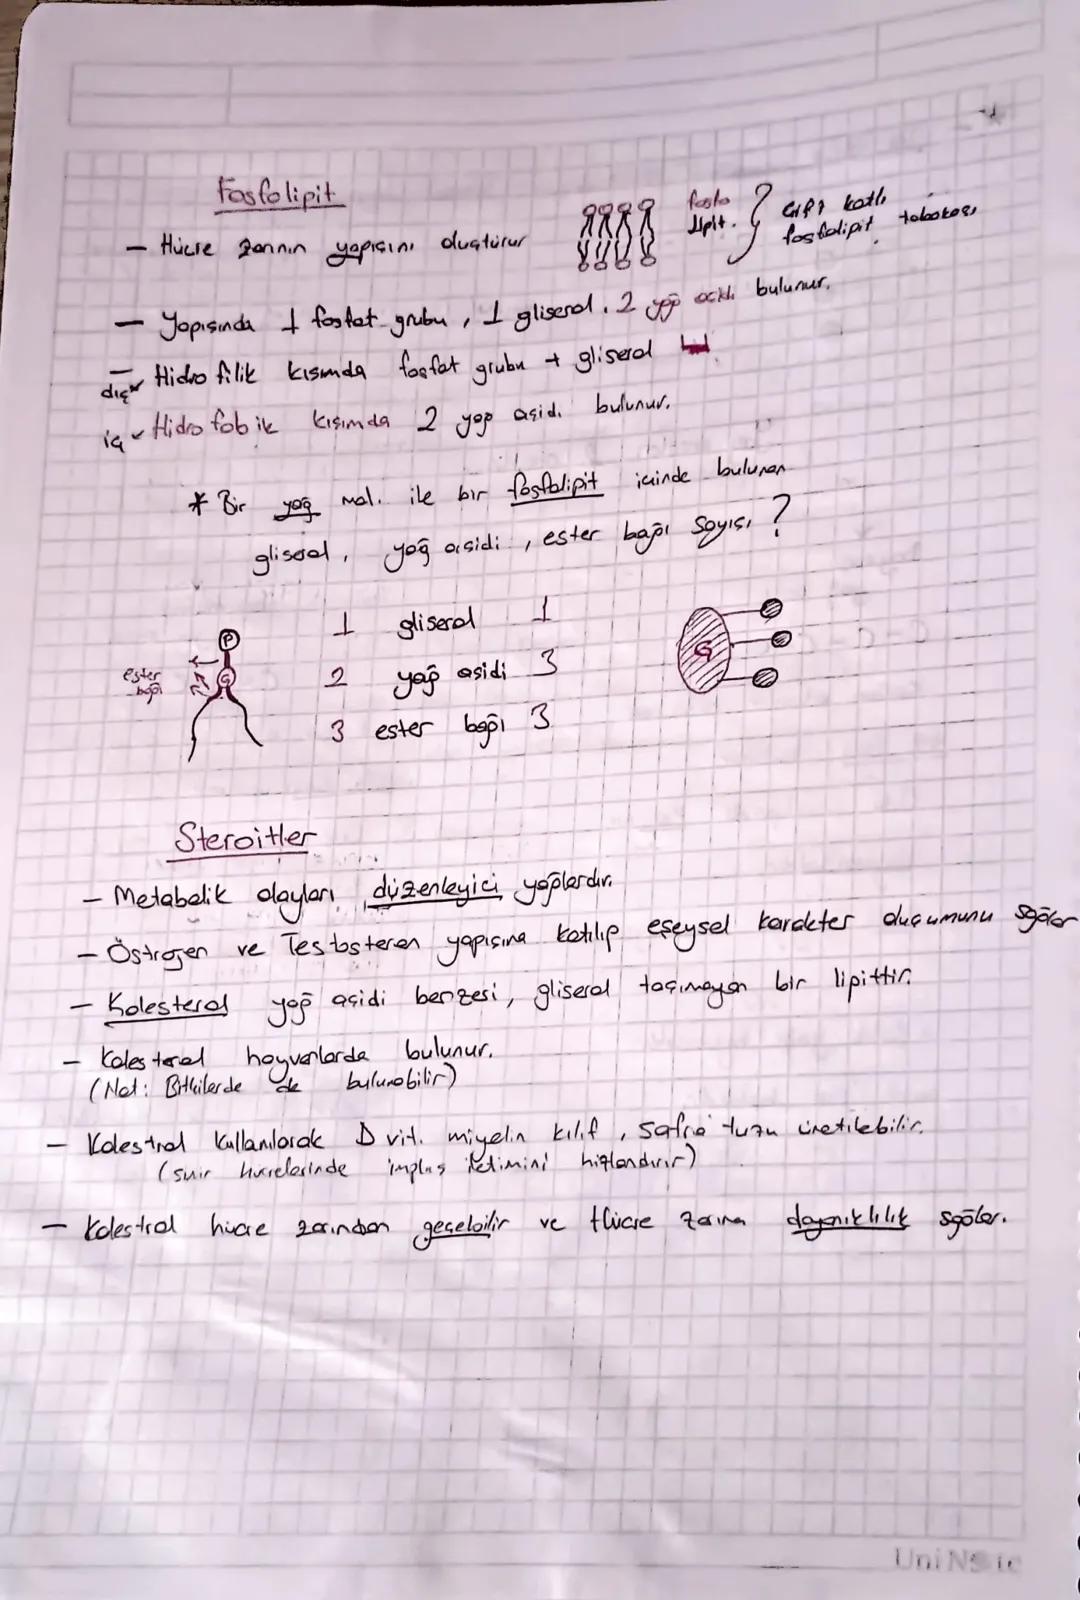 Fosfolipit
- Hücre zarının yapısını oluşturur
fosfo
lipit.
Çift katlı
fosfolipit tabakası
- Yapısında 1 fosfat grubu, 1 gliserol, 2 yağ asidi bulunur.
- Hidrofilik kısımda fosfat grubu + gliserol
dış
iç
Hidrofobik kısımda 2 yağ asidi bulunur.
* Bir yağ mol. ile bir fosfolipit içinde bulunan
gliserol, yağ asidi, ester bağı sayısı?
P
G
ester
bağı
1 gliserol 1
2 yağ asidi 3
3 ester bağı 3
G
Steroitler
- Metabolik olayları düzenleyici yağlardır.
- Östrojen ve Testosteron yapısına katılıp eşeysel karakter oluşumunu sağlar
- Kolesterol yağ asidi benzesi, gliserol taşımayan bir lipittir.
- Kolesterol hayvanlarda bulunur.
(Not: Bitkilerde de bulunabilir)
- Kolestrol kullanılarak D vit. miyelin kılıf, safra tuzu üretilebilir.
(sinir hücrelerinde impuls iletimini hızlandırır)
- Kolestrol hücre zarından geçebilir ve Hücre zarına dayanıklılık sağlar.
UniNote